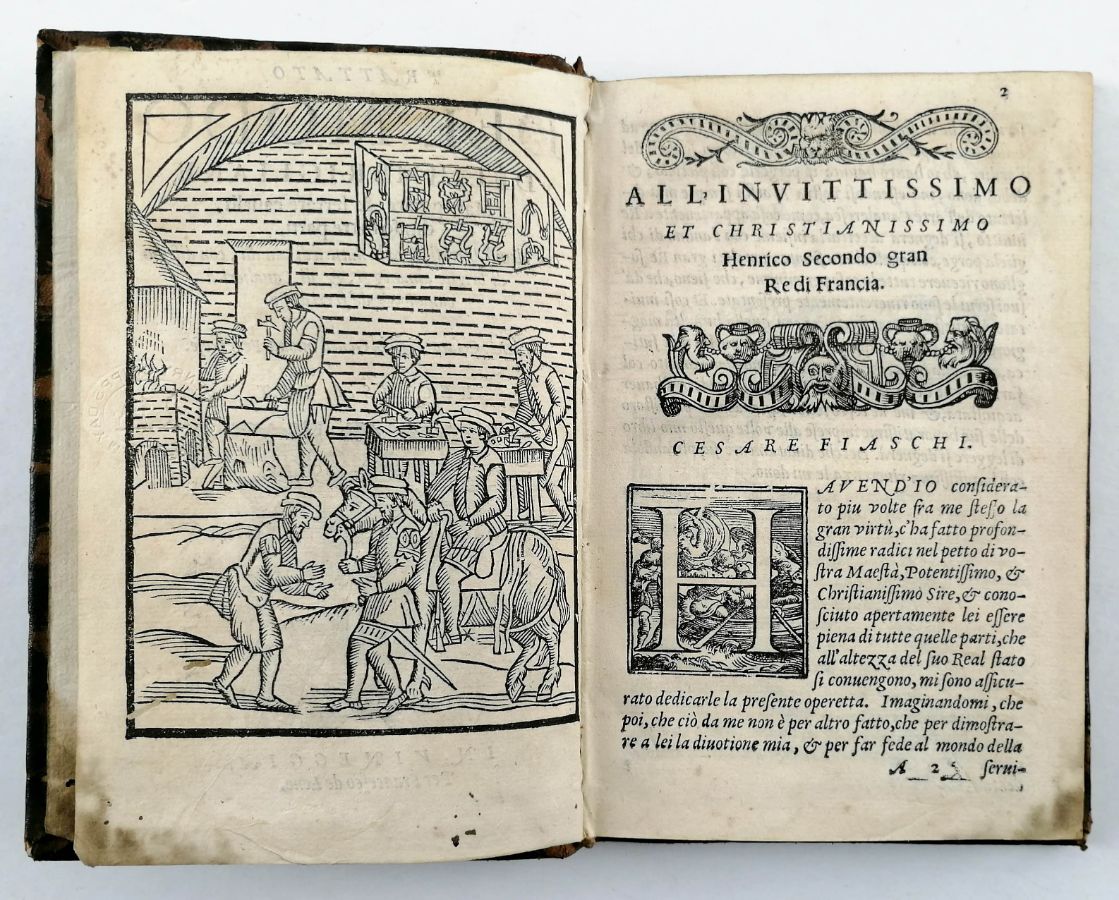 2
ALL'INVITTISSIMO
ET CHRISTIANISSIMO
Henrico Secondo gran
Re di Francia.
CESARE FIASCHI.
HAVEND'IO considera-
to piu volte fra me steſſo la
gran virtù, c'ha fatto profon-
diſſime radici nel petto di vo-
ſtra Maeſtà, Potentiſſimo, &
Chriſtianiſſimo Sire, & cono-
ſciuto apertamente lei eſſere
piena di tutte quelle parti, che
all'altezza del ſuo Real ſtato
ſi conuengono, mi ſono aſſicu-
rato dedicarle la preſente operetta. Imaginandomi, che
poi, che ciò da me non è per altro fatto, che per dimoſtra-
re a lei la diuotione mia, & per far fede al mondo della
A 2 ſerui-